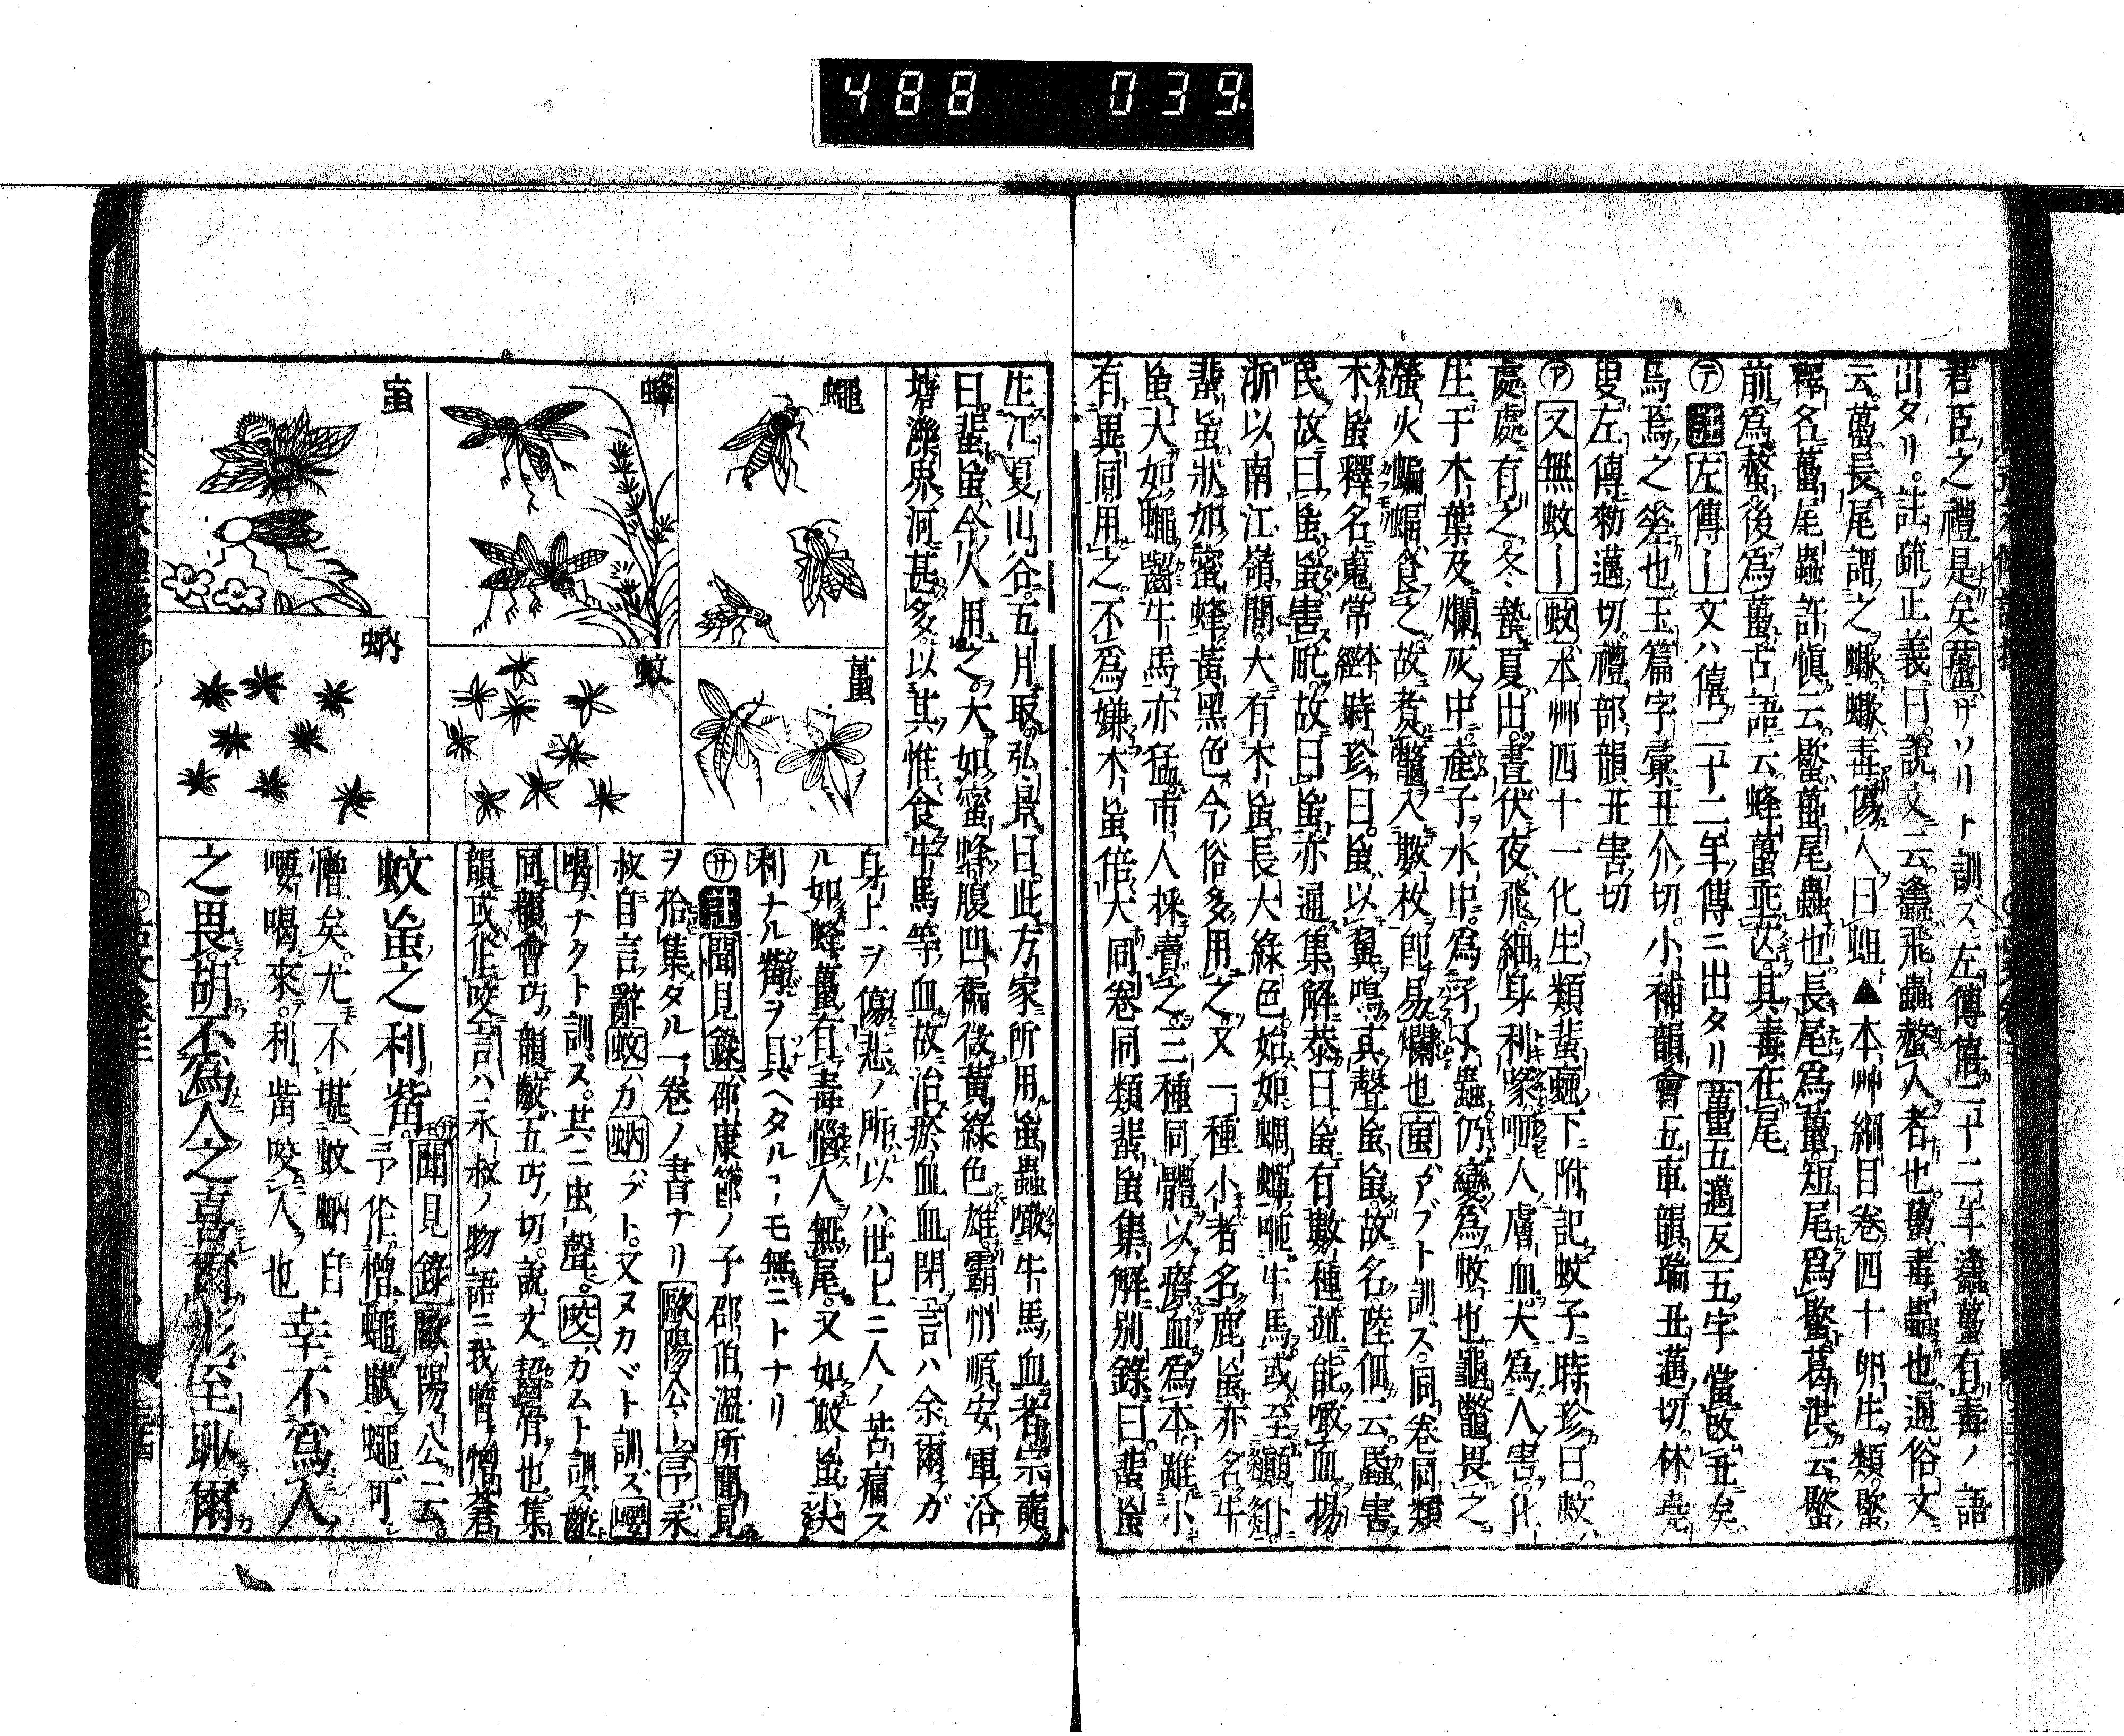 488 039.
君臣之禮是矣蠆ハサソリト訓ス左傳僖二十二年蠭蠆有毒ノ語
出タリ。註疏正義曰。說文云蠭飛蟲螫人者也。蠆毒蟲也。通俗文
云。蠆長尾謂之蠍。蠍毒傷人曰蛆▲本艸綱目卷四十卵生類蠍
釋名蠆尾蟲許慎云。蠍蠆尾蟲也。長尾爲蠆。短尾爲蠍。葛洪云蠍
前爲螫。後爲蠆。古語云。蜂蠆垂芒。其毒在尾
㋢註左傳―文ハ僖二十二年傳ニ出タリ蠆五邁反五字當改丑矣。
烏焉之差也。玉篇字彙丑介切。小補韻會五車韻瑞丑邁切。林堯
叟左傳勑邁切。禮部韻丑害切
㋐又無蚊―蚊本艸四十一化生類蜚䖟下附記蚊子時珍曰。蚊
處處有之冬蟄夏出。晝伏夜飛。細身利喙。咂人膚血大爲人害。化
生于木葉及爛灰中。產子ヲ水中。爲孑孑蟲仍變爲蚊也。龜鼈畏之
螢火蝙蝠食之。故煮鼈入數枚卽易爛也䖟ハアブト訓ズ。同卷同類
木䖟釋名䰟常本經時珍曰。䖟以翼鳴。其聲䖟䖟。故名。陸佃云。䘇害
民故曰䖟。䖟害甿。故曰䖟亦通。集解恭曰䖟有數種竝能噉血。揚
浙以南江嶺間。大有木䖟長大綠色。始如蜩蟬咂牛馬。或至顚仆
蜚䖟狀如蜜蜂。黃黑色。今俗多用之。又一種小者名鹿䖟亦名牛
䖟大如蠅。齧牛馬亦猛。市人採賣之。三種同體以療血爲本。雖小
有異同。用之不爲嫌。木䖟倍大同卷同類蜚䖟集解別錄曰。蜚䖟
生江夏山谷。五月取。弘景曰。此方家所用䖟蟲噉牛馬血者宗奭
曰。蜚䖟今人用之。大如蜜蜂腹凹褊微黃綠色雄霸州順安軍沿
塘濼界河甚多。以其惟食牛馬等血故治瘀血血閉言ハ余爾チガ
身上ヲ傷悲ノ所以ハ世上ニ人ノ苦痛ス
ル如蜂蠆有毒惱人無尾。又如蚊䖟尖
利ナル觜ヲ具ヘタルコモ無ニトナリ
㋚註聞見錄邵康節ノ子邵伯溫所聞見
ヲ拾集タル一卷ノ書ナリ歐陽公―予永
叔自言辭蚊ハカ蚋ハブト。又ヌカバト訓ズ嚶
喝ナクト訓ズ。共ニ虫聲。咬カムト訓ズ齩
同韻會巧韻齩五巧切。說文齧骨也集
韻或作咬言ハ永叔ノ物語ニ我嘗憎蒼
蠅
蜂
䖟
蠆
蚊
蚋
蚊䖟之利觜。㋚聞見錄歐陽公云。
予作憎蠅賦蠅可
憎矣。尤不堪蚊蚋自
嚶喝來。利觜咬人也
幸不爲人
之畏胡不爲人之喜爾形至眇爾